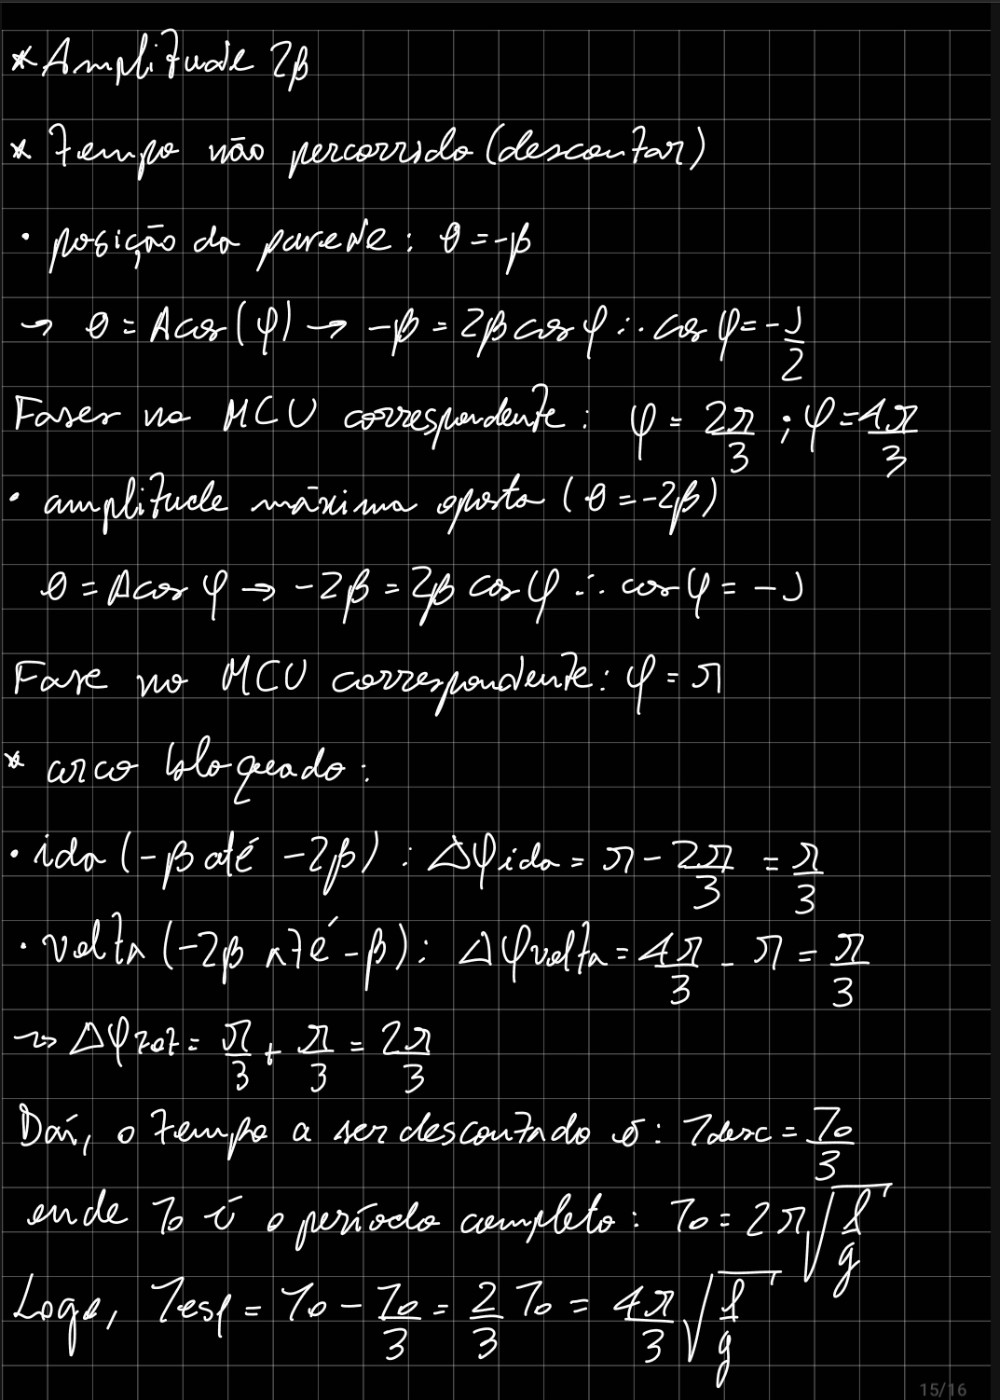 * Amplitude 2β
* Tempo não percorrido (descontar)
• posição da parede: θ = -β
→ θ = A cos(φ) → -β = 2β cos φ ∴ cos φ = -1/2
Fases no MCU correspondente: φ = 2π/3 ; φ = 4π/3
• amplitude máxima oposta (θ = -2β)
θ = A cos φ → -2β = 2β cos φ ∴ cos φ = -1
Fase no MCU correspondente: φ = π
* arco bloqueado:
• ida (-β até -2β): Δφida = π - 2π/3 = π/3
• volta (-2β até -β): Δφvolta = 4π/3 - π = π/3
↝ Δφtot = π/3 + π/3 = 2π/3
Daí, o tempo a ser descontado é: Tdesc = T0/3
onde T0 é o período completo: T0 = 2π√(l/g)
Logo, Tesq = T0 - T0/3 = 2/3 T0 = 4π/3 √(l/g)
15/16